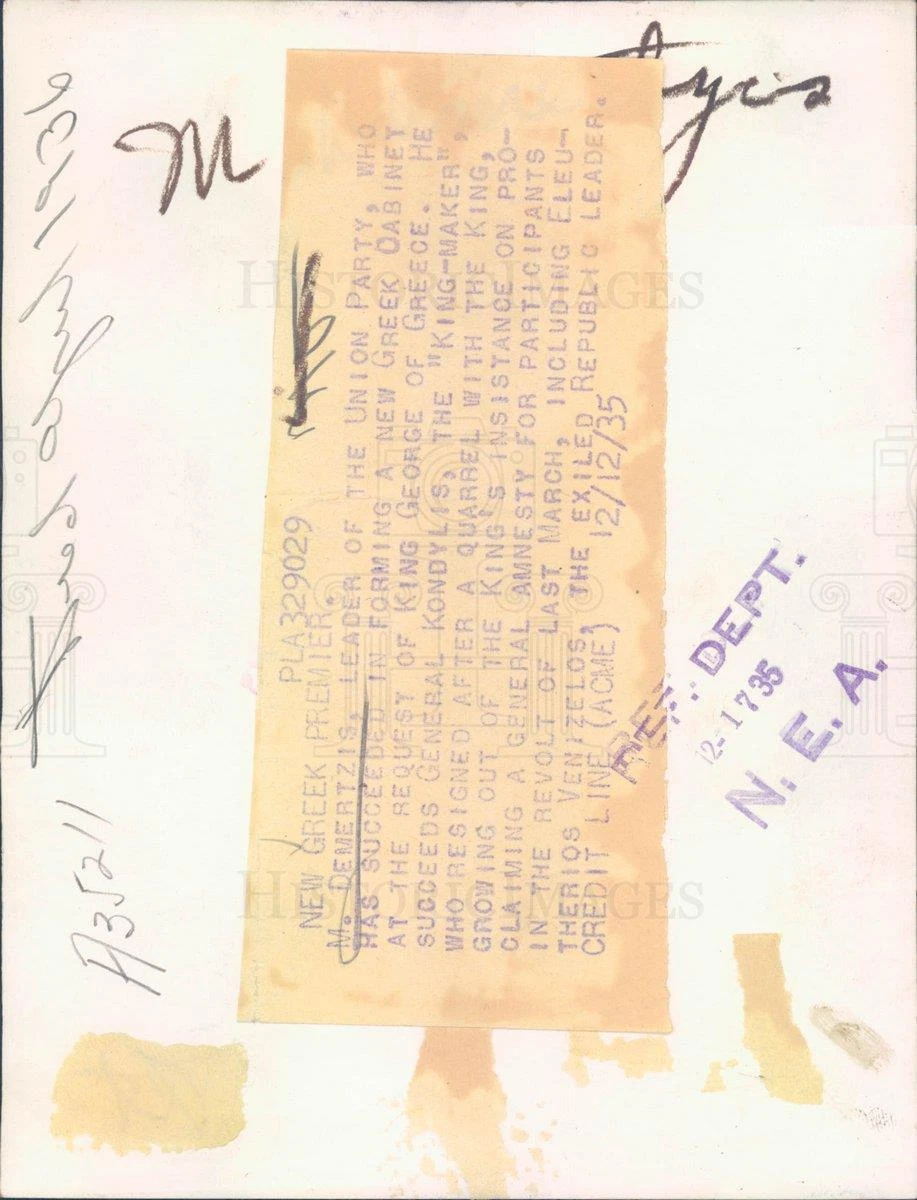 PLA329029
NEW GREEK PREMIER.
M. DEMERTZIS, LEADER OF THE UNION PARTY, WHO
HAS SUCCEEDED IN FORMING A NEW GREEK CABINET
AT THE REQUEST OF KING GEORGE OF GREECE. HE
SUCCEEDS GENERAL KONDYLIS, THE "KING-MAKER",
WHO RESIGNED AFTER A QUARREL WITH THE KING,
GROWING OUT OF THE KING'S INSISTANCE ON PRO-
CLAIMING A GENERAL AMNESTY FOR PARTICIPANTS
IN THE REVOLT OF LAST MARCH, INCLUDING ELEU-
THERIOS VENIZELOS, THE EXILED REPUBLIC LEADER.
CREDIT LINE (ACME) 12/12/35
REF. DEPT.
12-17 35
N. E. A.
1936
A35211
M
HISTORIC IMAGES
HISTORIC IMAGES